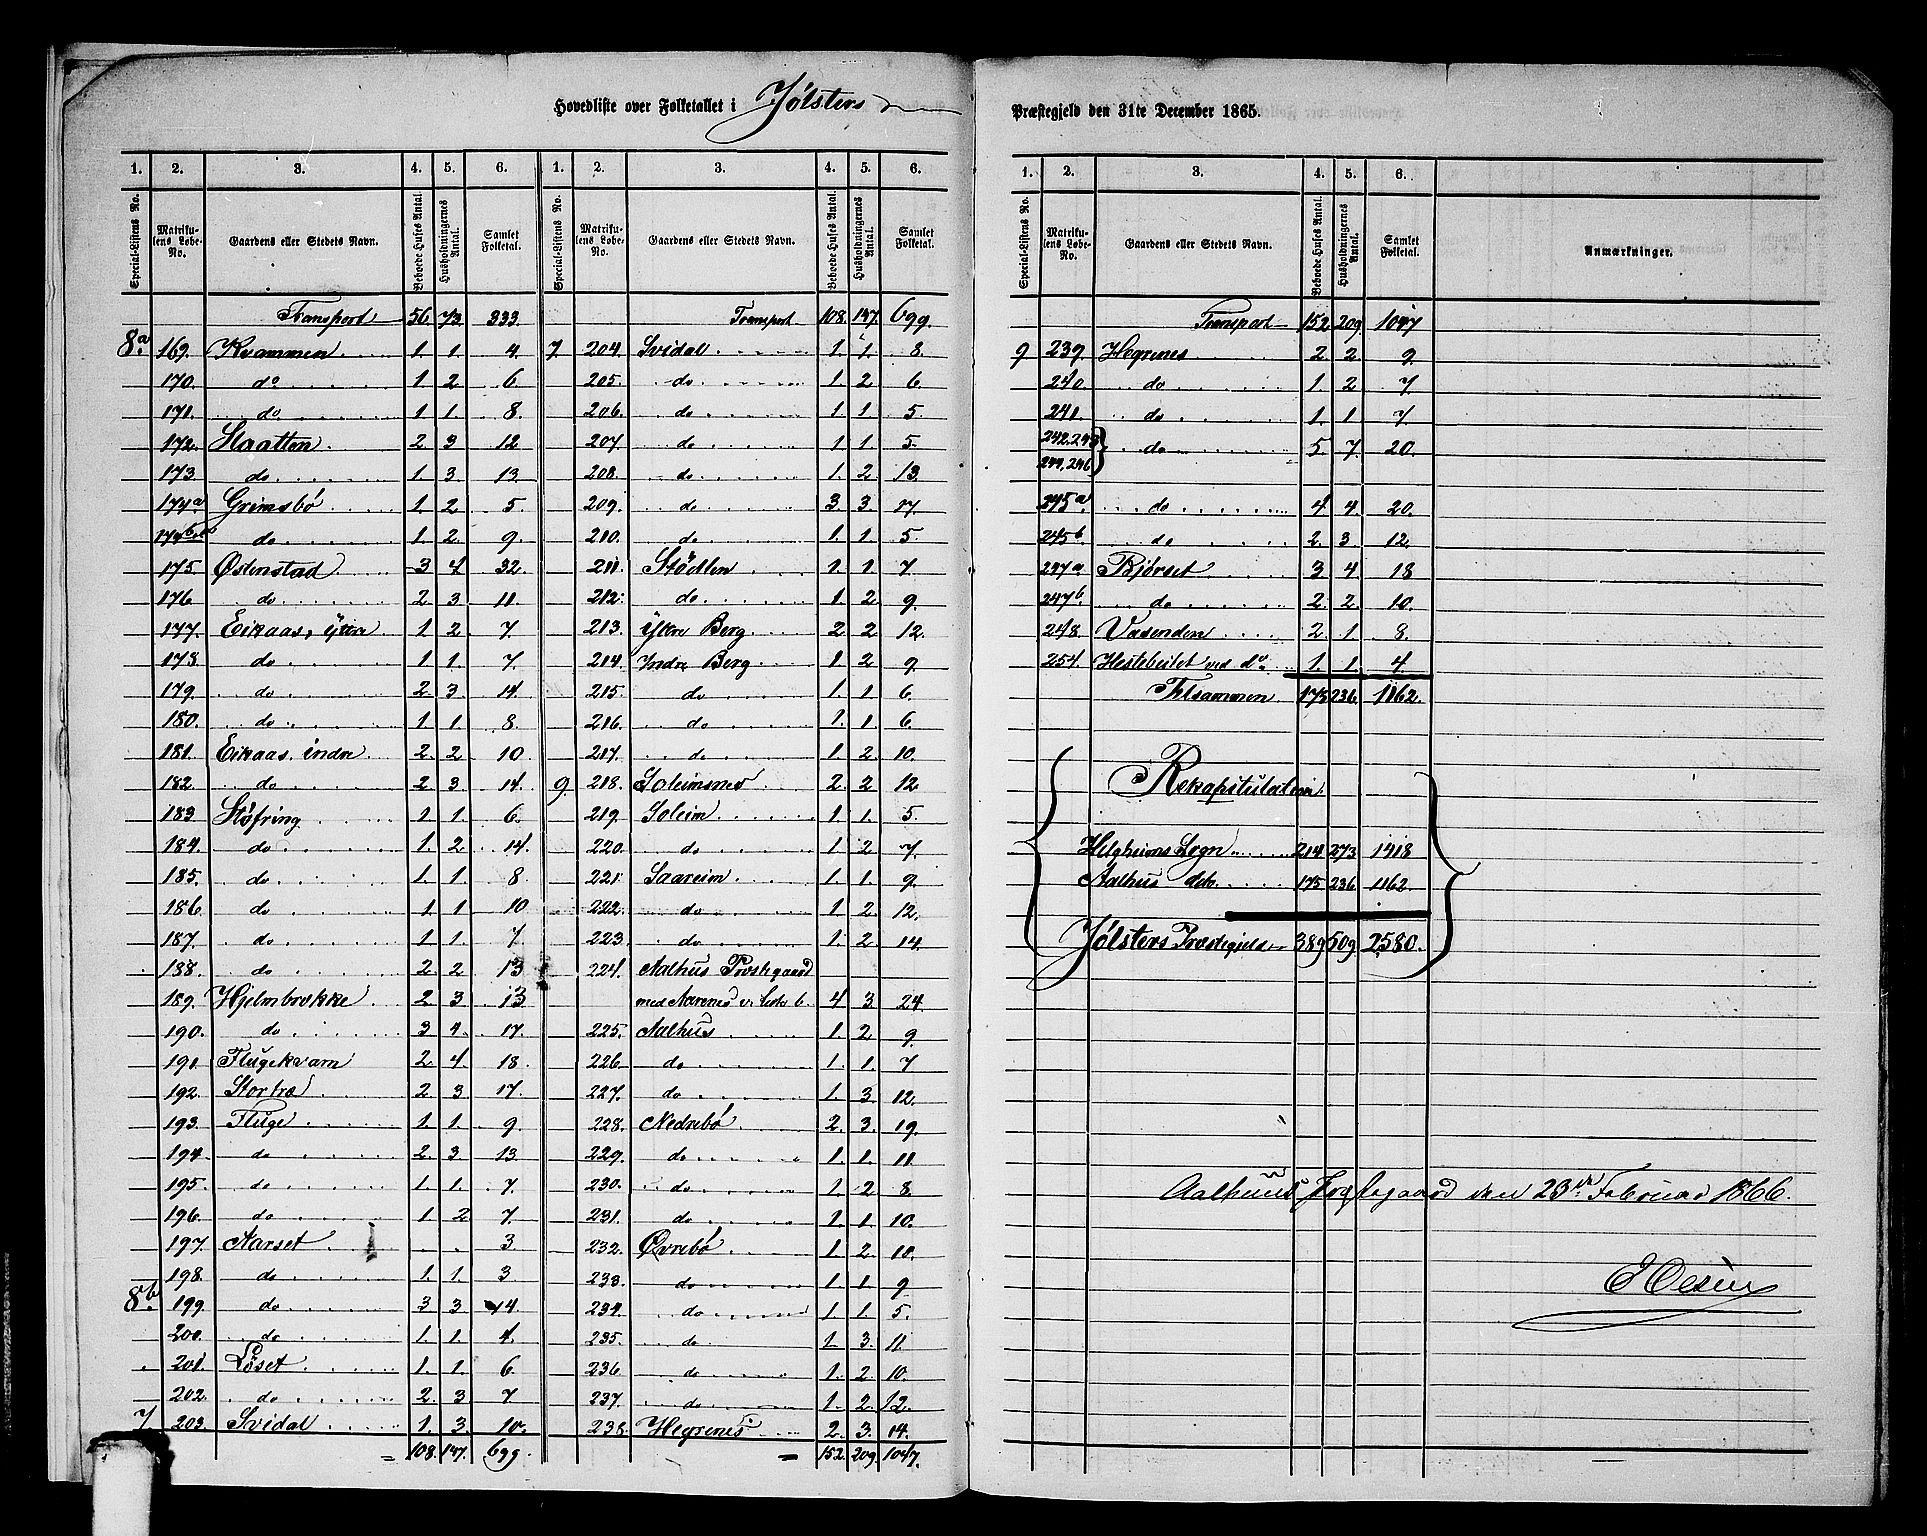 Hovedliste over Folketallet i Jølsters Præstegjeld den 31te December 1865.
1. 2. 3. 4. 5. 6. 1. 2. 3. 4. 5. 6.
Special-Listens No. Matrikulens Løbe-No. Gaardens eller Stedets Navn. Beboede Huses Antal. Husholdningernes Antal. Samlet Folketal. Special-Listens No. Matrikulens Løbe-No. Gaardens eller Stedets Navn. Beboede Huses Antal. Husholdningernes Antal. Samlet Folketal.
Transport 56. 73. 333.
8a. 169. Kvammen 1. 1. 4.
170. do 1. 2. 6.
171. do 1. 1. 8.
172. Slaatten 2. 3. 12
173. do 1. 3. 13.
174a Grimsbø 1. 2. 5.
do 1. 2. 9.
175. Østenstad 3. 4. 32.
176. do 2. 3. 11.
177. Eikaas, ytre 1. 2. 7.
178. do 1. 1. 7.
179. do 2. 3. 14.
180. do 1. 1. 8.
181. Eikaas, indre 2. 2. 10
182. do 2. 3. 14.
183 Støfring 1. 1. 6.
184. do 1. 2. 14.
185. do 1. 1. 8
186. do 1. 1. 10
187. do 1. 1. 7.
188. do 2. 2. 13
189. Hjelmbrekke 2. 3. 13
190. do 3. 4. 17.
191. Flugekvam 2. 4. 18.
192. Stortræ 2. 3. 17.
193. Fluge 1. 1. 9
194. do 2. 3. 13.
195. do 1. 1. 7.
196. do 1. 2. 7.
197. Aarset 3
198. do 1. 1. 3
8b. 199. do 3. 3. 14.
200. do 1. 1. 4.
201. Løset 1. 1. 6
202. do 2. 3. 7
7. 203. Svidal 1. 3. 10.
= 108. 147. 699.
Transport 108. 147. 699.
7. 204. Svidal 1. 1. 8.
205. do 1. 2. 6.
206. do 1. 1. 5.
207. do 1. 1. 5.
208. do 1. 2. 13.
209. do 3. 3. 17.
210. do 1. 1. 5
211. Stødlen 1. 1. 7
212. do 1. 2. 9.
213. Ytre Berg 2. 2. 12.
214. Indre Berg 1. 2. 9.
215. do 1. 1. 6.
216. do 1. 1. 6.
217. do 1. 2. 10.
9. 218. Soleimsnes 2. 2. 12
219. Soleim 1. 1. 5.
220. do 1. 2. 7.
221. Saareim 1. 1. 9.
222. do 1. 2. 12.
223. do 1. 2. 14.
224. Aalhus Prestegaard
med Aarenes v. Liste 6. 4. 3. 24.
225. Aalhus 1. 2. 9.
226. do 1. 1. 7
227. do 1. 3. 12.
228. Nedrebø 2. 3. 19.
229. do 1. 1. 11.
230. do 1. 2. 8.
231. do 1. 1. 10.
232. Øvrebø 1. 2. 10.
233. do 1. 1. 9
234. do 1. 1. 5.
235. do 1 3. 11
236 do 1. 2. 10.
237. do 1. 2. 12.
238. Hegrenes 2. 3. 14.
= 152. 209. 1047.
1. 2. 3. 4. 5. 6.
Special-Listens No. Matrikulens Løbe-No. Gaardens eller Stedets Navn. Beboede Huses Antal. Husholdningernes Antal. Samlet Folketal. Anmærkninger.
Transport 152. 209. 1047
9 239. Hegrenes 2. 2. 9.
240. do 1. 2. 7
241. do 1. 1. 7.
242. 243 } do 5. 7. 20.
244. 246
245a do 4. 4. 20.
245b. do 2. 3. 12.
247a Bjørset 3. 4. 18
247b. do 2. 2. 10.
248. Vasenden 2. 1. 8.
254. Hestebeitet ved do. 1. 1. 4
Tilsammen 175 236. 1162.
Rekapitulation
Helgheims Sogn 214 273 1418
Aalhus dito. 175 236. 1162.
Jølsters Præstegjeld 389 509. 2580.
Aalhuus Prestegaard den 23de Februar 1866.